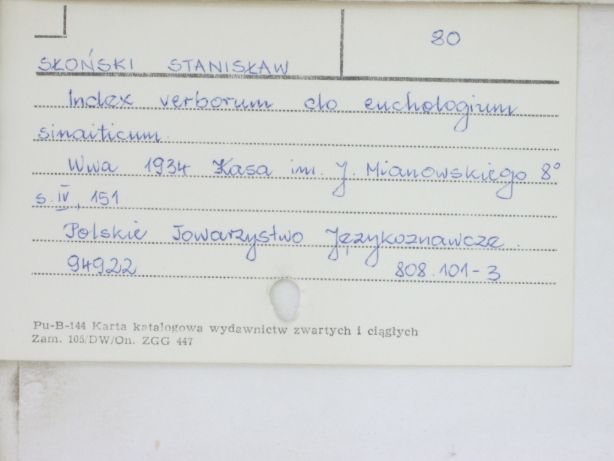 80
SŁOŃSKI STANISŁAW
Index verborum do euchologium
sinaiticum.
Wwa 1934 Kasa im. J. Mianowskiego 8°
s. IV, 151
Polskie Towarzystwo Językoznawcze.
94922 808.101-3
Pu-B-144 Karta katalogowa wydawnictw zwartych i ciągłych
Zam. 105/DW/On. ZGG 447